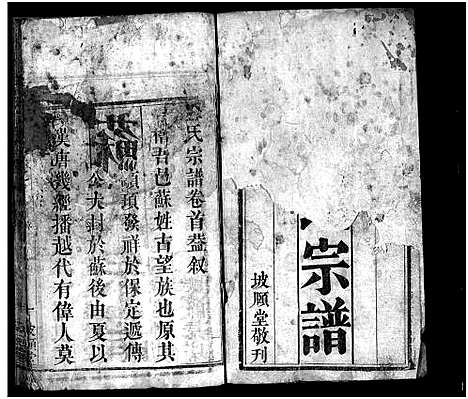 宗譜
坡願堂敬刊
氏宗譜卷首叙
吾邑蘇姓古望族也原其
蘇
頊發祥於保定遞傳
公夫封於蘇後由夏以
漢唐幾經播越代有偉人莫